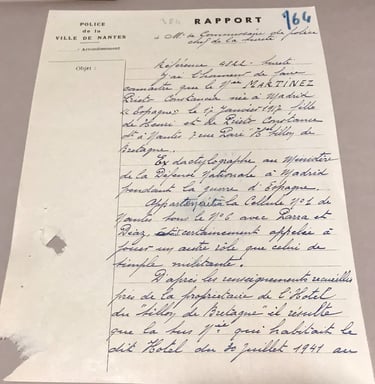 POLICE
de la
VILLE DE NANTES
Arrondissement
Objet :
RAPPORT
764
à Mr le Commissaire de police
chef de la sureté
Référence 4522 Sureté
J'ai l'honneur de faire
connaitre que la Née MARTINEZ
Prieto Constancia née à Madrid
(Espagne) le 17 Janvier 1917 fille
de Henri et de Prieto Constance
dt à Nantes 7 rue Paré Hel Sillon de
Bretagne.
Ex dactylographe au Ministère
de la Défense Nationale à Madrid
pendant la guerre d'Espagne.
Appartenait à la Cellule N°6 de
Nantes sous le N°6 avec Parra et
Diaz certainement appelée à
jouer un autre rôle que celui de
simple militante.
D'après les renseignements recueillis
près de la propriétaire de l'Hotel
du "Sillon de Bretagne" il résulte
que la sus Née qui habitait le
dit Hotel du 30 Juillet 1941 au